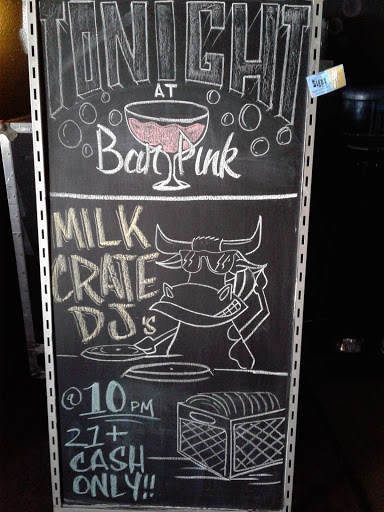 TONIGHT
AT
Bar Pink
MILK
CRATE
DJ's
@ 10 PM
21+
CASH
ONLY!!